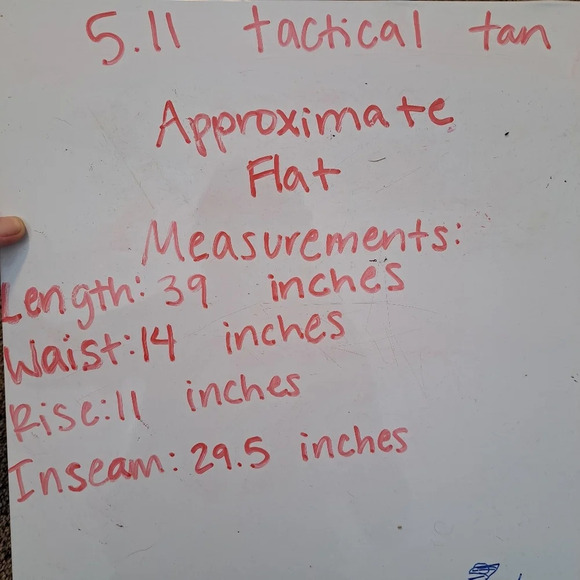 5.11 tactical tan
Approximate
Flat
Measurements:
Length: 39 inches
Waist: 14 inches
Rise: 11 inches
Inseam: 29.5 inches